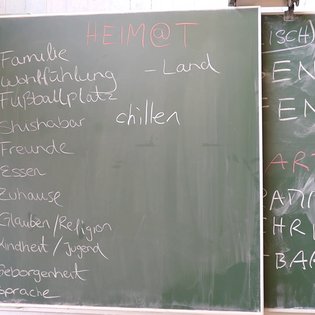 HEIM@T
Familie
Wohlfühlung
- Land
Fußballplatz
Shishabar
chillen
Freunde
Essen
Zuhause
Glauben/Religion
Kindheit/Jugend
Geborgenheit
Sprache
ISCH)
EN
EN
ART
BAR